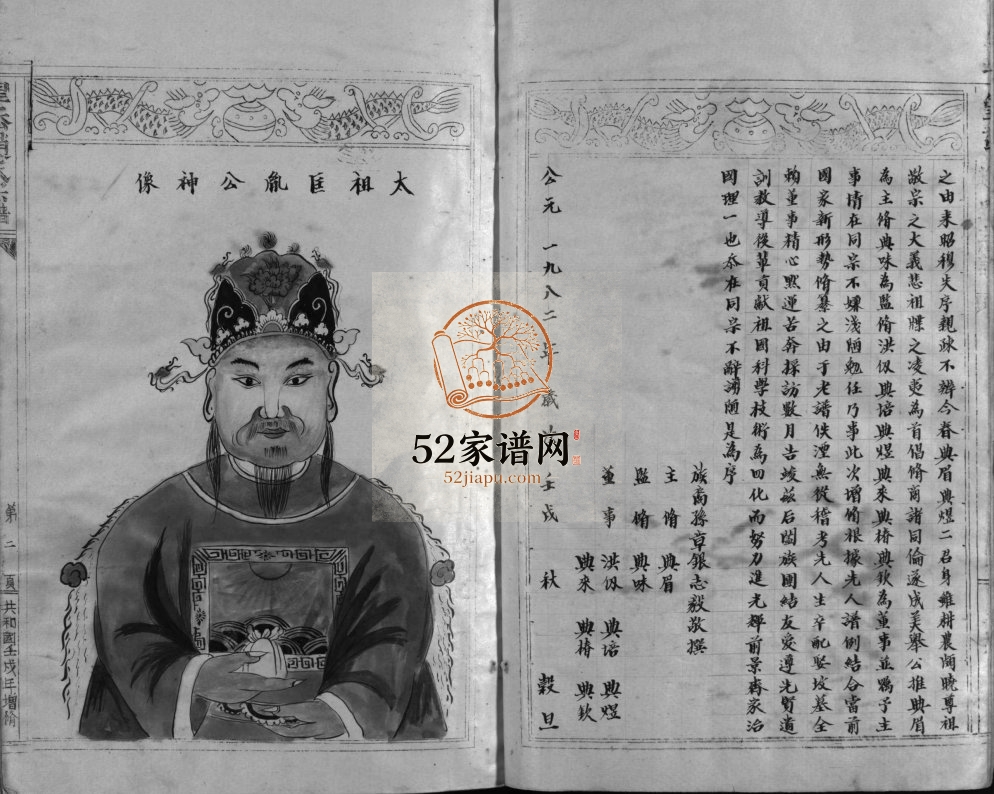 之由来昭穆失序親疎不辨今春典眉典煜二君身雖耕農闻曉尊祖
敬宗之大義悲祖牒之凌夷為首倡脩商諸同倫遂成美舉公推典眉
為主脩典味為監脩洪仅典培典煜典来典椿典欽為董事並嘱予主
事情在同宗不嫌浅陋勉任乃事此次增脩根據先人譜例结合當前
國家新形勢脩纂之由于老譜佚湮無從稽考先人生卒配娶坟墓全
賴董事精心照運苦奔採訪數月告竣兹后閤族團结友爱遵先賢遺
訓教導後輩貢献祖國科學技術為四化而努力進光輝前景齊家治
國理一也忝在同宗不辭谫陋是為序
族裔孫章銀志毅敬撰
主脩 典眉
監脩 典味
董事 洪仅 典培 典煜
典來 典椿 典欽
公元一九八二 歲 壬戌 秋 榖旦
太祖匡胤公神像
第二頁 共和國壬戌年增脩
52家谱网
52jiapu.com